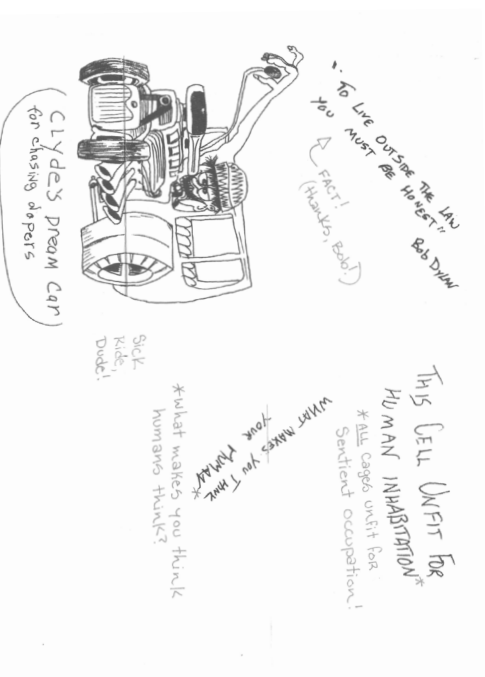 "TO LIVE OUTSIDE THE LAW
YOU MUST BE HONEST"
BOB DYLAN
FACT!
(thanks, Bob!)
CLyde's DReAM CaR
for chasing dopers
Sick
Ride,
Dude!
THIS CELL UNFIT FOR
HUMAN INHABITATION*
*ALL cages unfit for
sentient occupation!
WHAT MAKES YOU THINK
YOUR HUMAN*
*What makes you think
humans think?